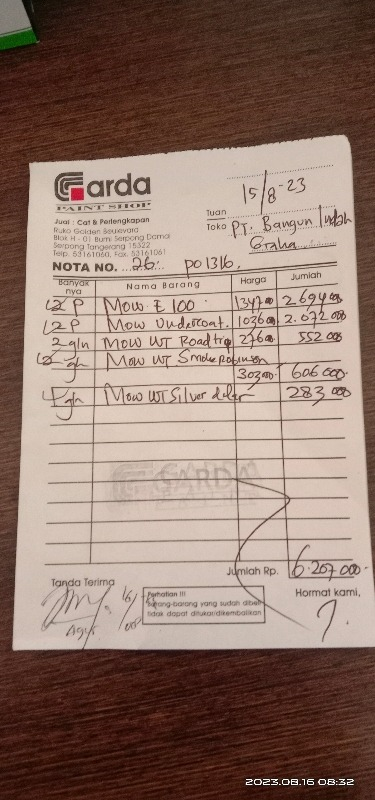 Garda
PAINT SHOP
Jual : Cat & Perlengkapan
Ruko Golden Boulevard
Blok H - 01 Bumi Serpong Damai
Serpong Tangerang 15322
Telp. 53161060, Fax. 53161061
15/8-23
Tuan
Toko PT. Bangun Indah
Graha
NOTA NO. 26. PO 1316.
Banyak nya Nama Barang Harga Jumlah
2 P Mow E 100 1347.000 2.694.000
2 P Mow Undercoat. 1036.000 2.072.000
2 gln Mow WT Road trip 276.000 552.000
2 gln Mow WT Smoke
303.000 606.000
1 gln Mow WT Silver 283.000
GARDA
Jumlah Rp. 6.207.000
Tanda Terima
Perhatian !!!
Barang-barang yang sudah dibeli
tidak dapat ditukar/dikembalikan.
Hormat kami,
Agus
2023.08.16 08:32